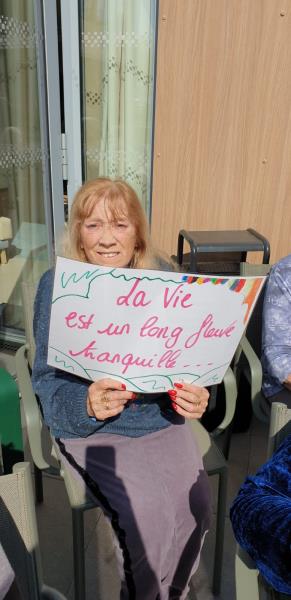 La Vie
est un long fleuve
tranquille...